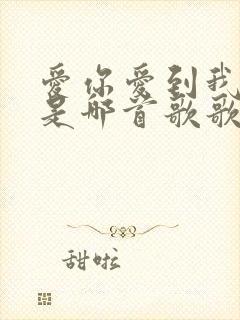 爱你爱到我
是那首歌歌
甜啦